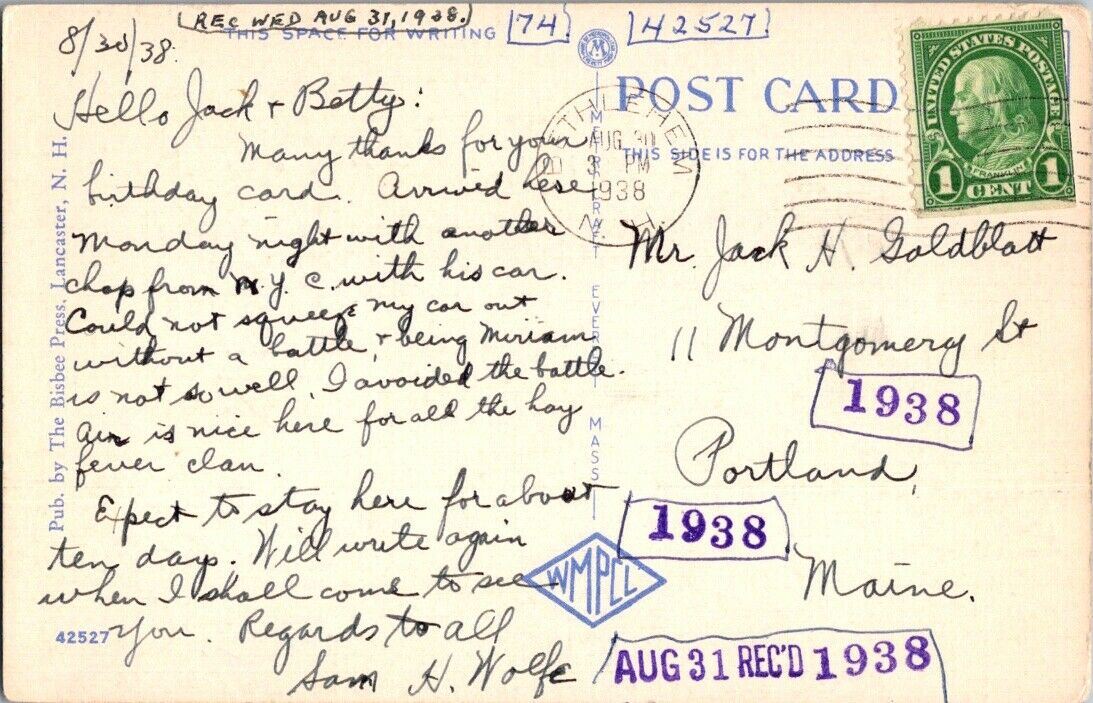 (REC WED AUG 31, 1938.)
THIS SPACE FOR WRITING
74
42527
8/30/38.
Hello Jack + Betty:
Many thanks for your
birthday card. Arrived here
Monday night with another
chap from N.Y.C. with his car.
Could not squeeze my car out
without a battle, + being Miriam
is not so well, I avoided the battle.
Air is nice here for all the hay
fever clan.
Expect to stay here for about
ten days. Will write again
when I shall come to see
you. Regards to all
Sam H. Wolfe
42527
Pub. by The Bisbee Press, Lancaster, N. H.
EVERETT MASS
WMPCL
POST CARD
THIS SIDE IS FOR THE ADDRESS
BETHLEHEM
AUG 30
3 PM
1938
N.H.
UNITED STATES POSTAGE
FRANKLIN
1 CENT 1
Mr. Jack H. Goldblatt
11 Montgomery St
1938
Portland,
1938
Maine.
AUG 31 REC'D 1938